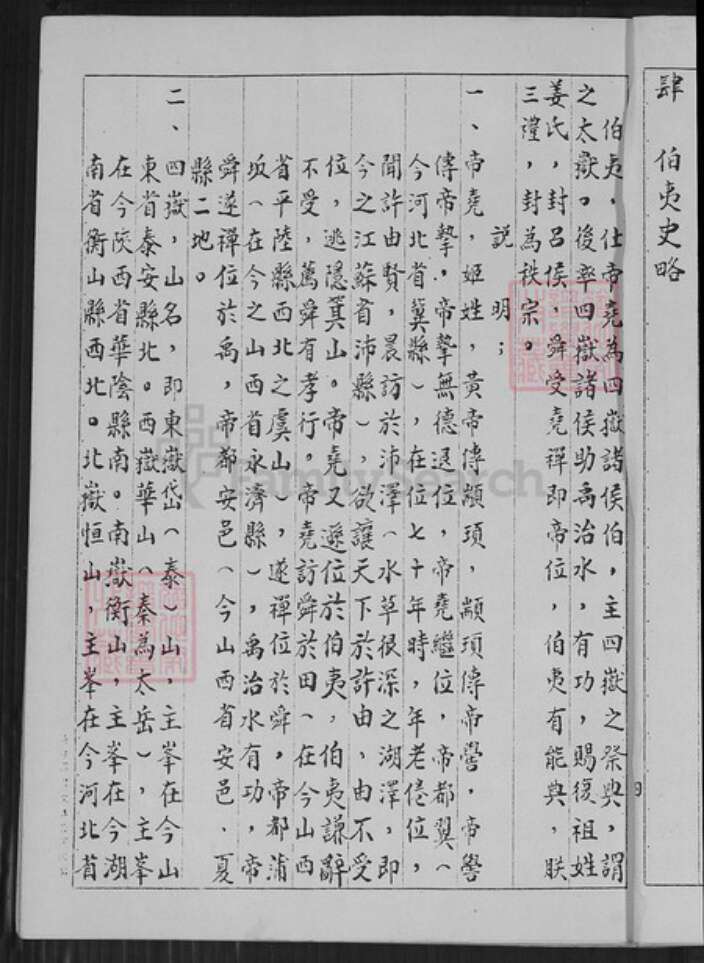 肆　伯夷史略
伯夷，仕帝堯為四嶽諸侯伯，主四嶽之祭典，謂
之太嶽。後率四嶽諸侯助禹治水，有功，賜復祖姓
姜氏，封呂侯，舜受堯禪即帝位，伯夷有能典，朕
三禮，封為秩宗。
説明：
一、帝堯，姬姓，黃帝傳顓頊，顓頊傳帝嚳，帝嚳
傳帝摯，帝摯無德退位，帝堯繼位，帝都翼（
今河北省冀縣），在位七十年時，年老倦位，
聞許由賢，晨訪於沛澤（水草很深之湖澤，即
今之江蘇省沛縣），欲讓天下於許由，由不受
位，逃隱箕山。帝堯又遜位於伯夷，伯夷謙辭
不受，薦舜有孝行。帝堯訪舜於田（在今山西
省平陸縣西北之虞山），遂禪位於舜，帝都蒲
坂（在今之山西省永濟縣），禹治水有功，帝
舜遂禪位於禹，帝都安邑（今山西省安邑、夏
縣二地。
二、四嶽，山名，即東嶽岱（泰）山，主峯在今山
東省泰安縣北。西嶽華山（秦為太岳），主峯
在今陝西省華陰縣南。南嶽衡山，主峯在今湖
南省衡山縣西北。北嶽恒山，主峯在今河北省
FamilySearch